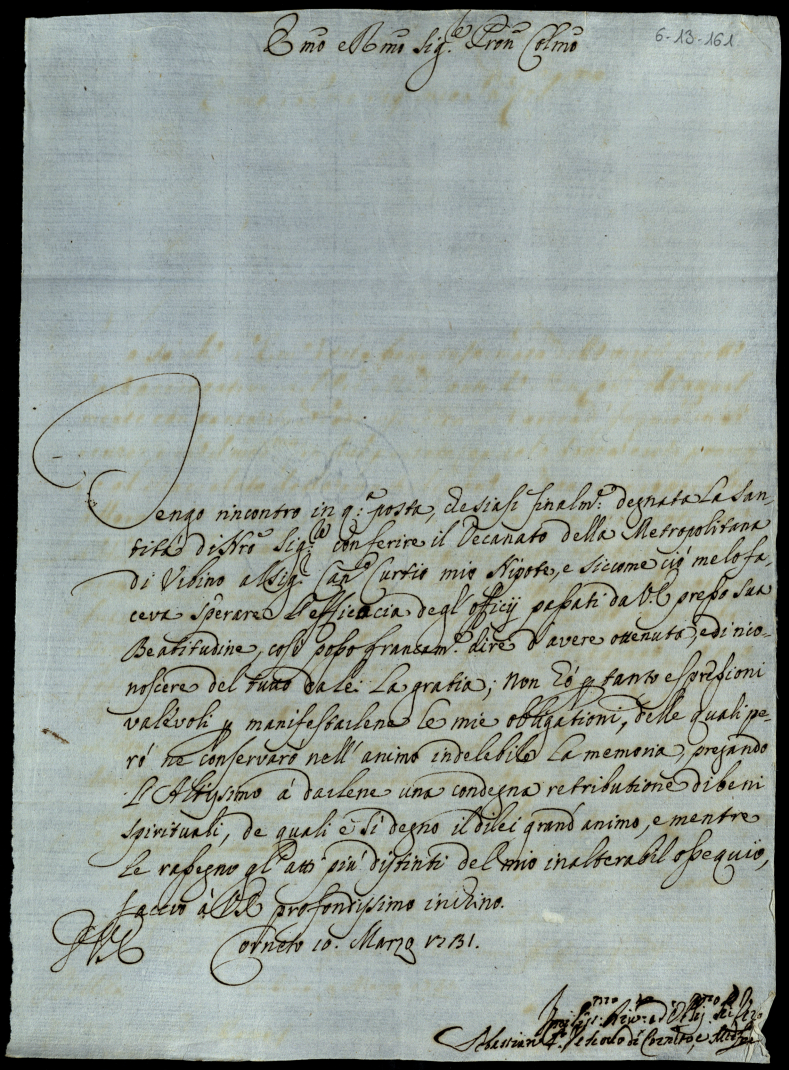 Emo e Rmo Sig.re Pron Colmo
6-13-161
Tengo rincontro in q.ta posta, che siasi finalm.te degnata la San-
tità di Nro Sig.re conferire il Decanato della Metropolitana
di Vrbino al Sig.r Can.co Curtio mio Nipote, e siccome ciò me lo fa-
ceva sperare l'efficacia degl'officij passati da V.E. presso Sua
Beatitudine, così posso francam.te dire d'avere ottenuto, e di rico-
noscere del tutto da lei la gratia; Non hò p tanto espressioni
valevoli p manifestarlene le mie obligationi, delle quali pe-
rò ne conservarò nell'animo indelebile la memoria, pregando
l'Altissimo à darlene una condegna retributione di beni
spirituali, de quali è sì degno il di lei grand'animo, e mentre
le rassegno gl'atti più distinti del mio inalterabil ossequio,
faccio à V.E. profondissimo inchino.
Corneto 10. Marzo 1731.
di
Sebastiano Vescovo di Corneto, e